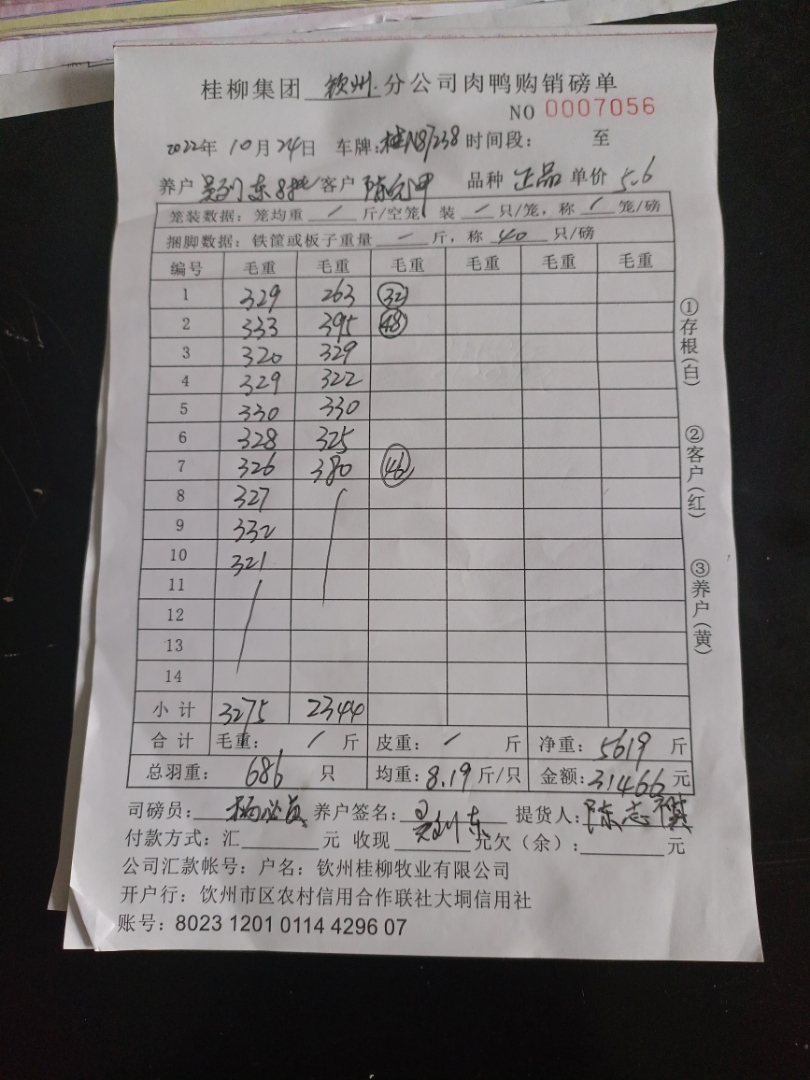 桂柳集团 钦州 分公司肉鸭购销磅单
NO 0007056
2022年 10月 24日 车牌:桂N87238 时间段: 至
养户 客户 品种 正品 单价 5.6
笼装数据: 笼均重 / 斤/空笼 装 / 只/笼, 称 / 笼/磅
捆脚数据: 铁筐或板子重量 — 斤, 称 40 只/磅
编号 毛重 毛重 毛重 毛重 毛重 毛重
1 329 263 32
2 333 395 48
3 320 329
4 329 322
5 330 330
6 328 325
7 326 380 46
8 327
9 332
10 321
11
12
13
14
小计 3275 2344
合计 毛重: / 斤 皮重: / 斤 净重: 5619 斤
总羽重: 686 只 均重: 8.19 斤/只 金额: 31466 元
①存根(白)
②客户(红)
③养户(黄)
司磅员: 养户签名: 提货人: 陈志
付款方式: 汇 元 收现 元欠(余): 元
公司汇款帐号: 户名: 钦州桂柳牧业有限公司
开户行: 钦州市区农村信用合作联社大垌信用社
账号: 8023 1201 0114 4296 07